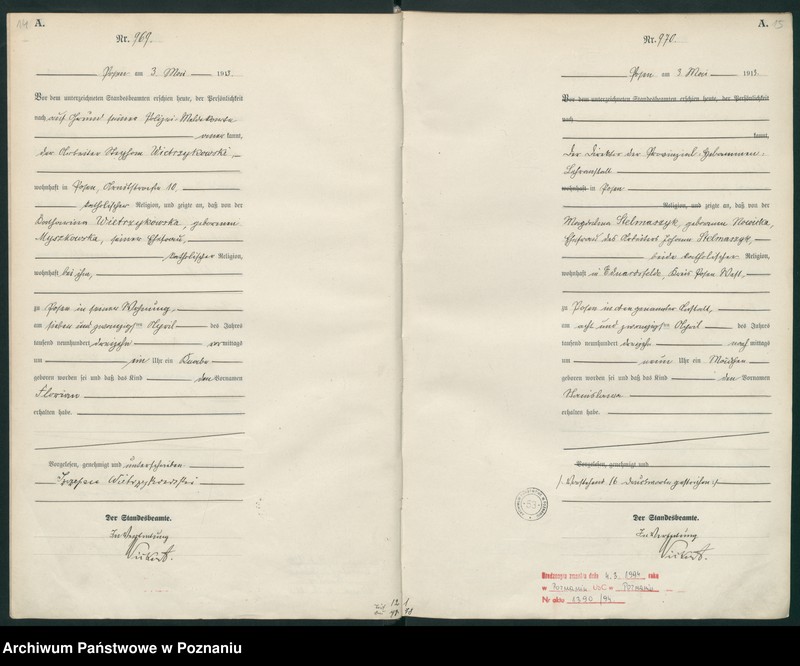 114
A.
Nr. 969.
Posen am 3. Mai 1913.
Vor dem unterzeichneten Standesbeamten erschien heute, der Persönlichkeit
nach auf Grund seiner Polizei-Meldekarte
anerkannt,
der Arbeiter Stephan Wietrzykowski,
wohnhaft in Posen, 10,
katholischer Religion, und zeigte an, daß von der
Katharina Wietrzykowska, geborenen
Myszkowska, seiner Ehefrau,
katholischer Religion,
wohnhaft bei ihm,
zu Posen in seiner Wohnung,
am sieben und zwanzigsten April des Jahres
tausend neunhundert dreizehn vormittags
um ein Uhr ein Knabe
geboren worden sei und daß das Kind den Vornamen
Florian
erhalten habe.
Vorgelesen, genehmigt und unterschrieben
Wietrzykowski
Der Standesbeamte.
In Vertretung
A.
15
Nr. 970.
Posen am 3. Mai 1913.
Vor dem unterzeichneten Standesbeamten erschien heute, der Persönlichkeit
nach
kannt,
Der Direktor der Provinzial-Hebammen-
Lehranstalt
wohnhaft in Posen
Religion, und zeigte an, daß von der
Magdalena Stelmaszyk, geborenen Nowicka,
Ehefrau des Arbeiters Johann Stelmaszyk,
beide katholischer Religion,
wohnhaft in Eduardsfelde, Kreis Posen West,
zu Posen in oben genannter Anstalt,
am acht und zwanzigsten April des Jahres
tausend neunhundert dreizehn nachmittags
um neun Uhr ein Mädchen
geboren worden sei und daß das Kind den Vornamen
Stanislawa
erhalten habe.
Vorgelesen, genehmigt und
/: Vorstehend 16 Druckworte gestrichen :/
Der Standesbeamte.
In Vertretung
4.3.1994 roku
w Poznaniu USC w Poznaniu
Nr aktu 1290/94
Archiwum Państwowe w Poznaniu